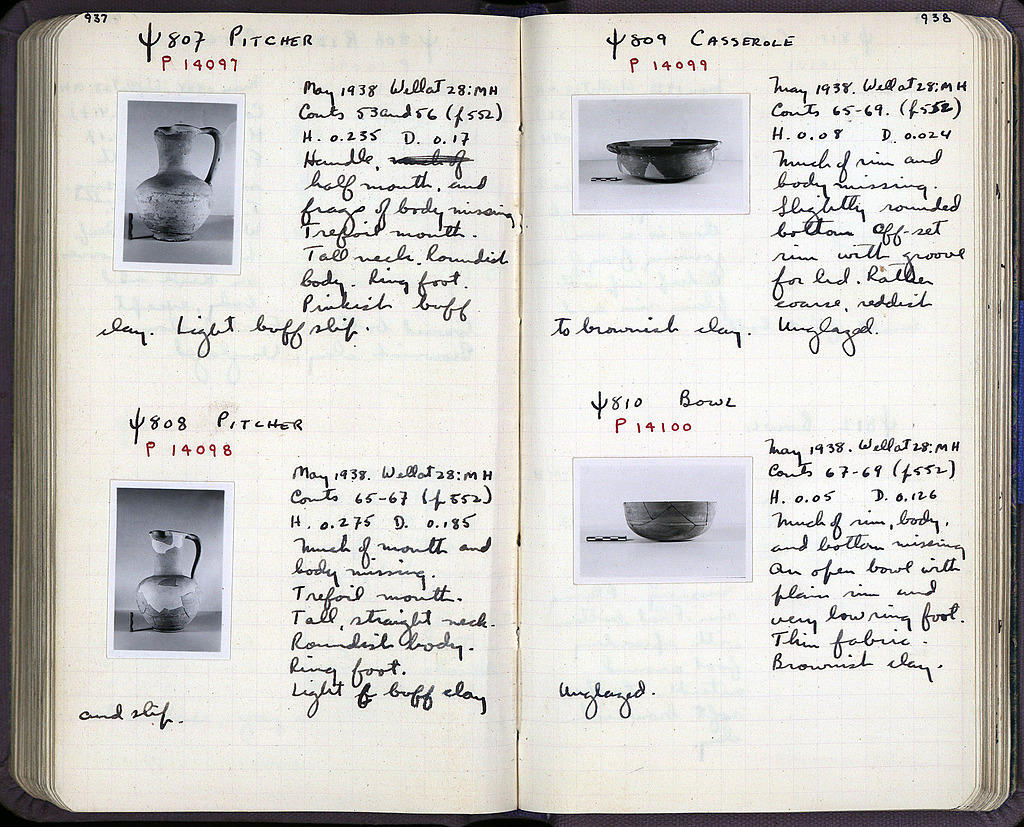 937
Ψ807 PITCHER
P 14097
May 1938 Well at 28:MH
Conts 53 and 56 (p552)
H. 0.235 D. 0.17
Handle, much of
half mouth, and
frags of body missing
Trefoil mouth.
Tall neck. Roundish
body. Ring foot.
Pinkish buff
clay. Light buff slip.
Ψ808 PITCHER
P 14098
May 1938. Well at 28:MH
Conts 65-67 (p552)
H. 0.275 D. 0.185
Much of mouth and
body missing.
Trefoil mouth.
Tall, straight neck.
Roundish body.
Ring foot.
Light buff clay
and slip.
938
Ψ809 CASSEROLE
P 14099
May 1938. Well at 28:MH
Conts 65-69. (p552)
H. 0.08 D. 0.024
Much of rim and
body missing.
Slightly rounded
bottom Off-set
rim with groove
for lid. Rather
coarse, reddish
to brownish clay. Unglazed.
Ψ810 BOWL
P 14100
May 1938. Well at 28:MH
Conts 67-69 (p552)
H. 0.05 D. 0.126
Much of rim, body,
and bottom missing
An open bowl with
plain rim and
very low ring foot.
Thin fabric.
Brownish clay.
Unglazed.